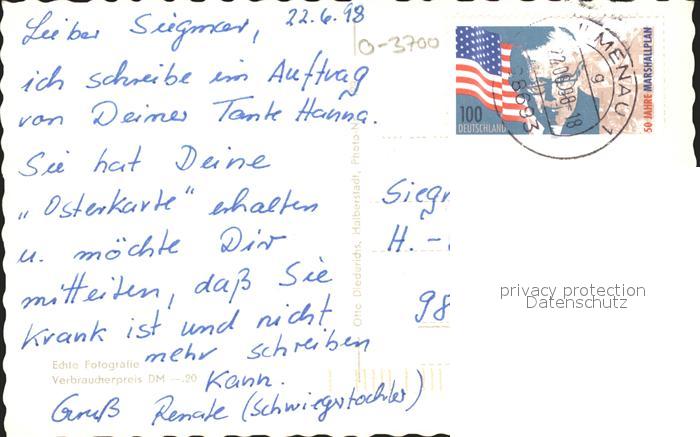 Lieber Siegmar, 22.6.98
O-3700
ich schreibe im Auftrag
von Deiner Tante Hanna.
Sie hat Deine
„Osterkarte" erhalten
u. möchte Dir
mitteilen, daß Sie
krank ist und nicht
mehr schreiben
kann.
Gruß Renate (Schwiegertochter)
Echte Fotografie
Verbraucherpreis DM –.20
Otto Diederichs, Halberstadt, Photo-
Siegr
H. -
98
100
DEUTSCHLAND
50 JAHRE MARSHALLPLAN
ILMENAU 1
98693
privacy protection
Datenschutz